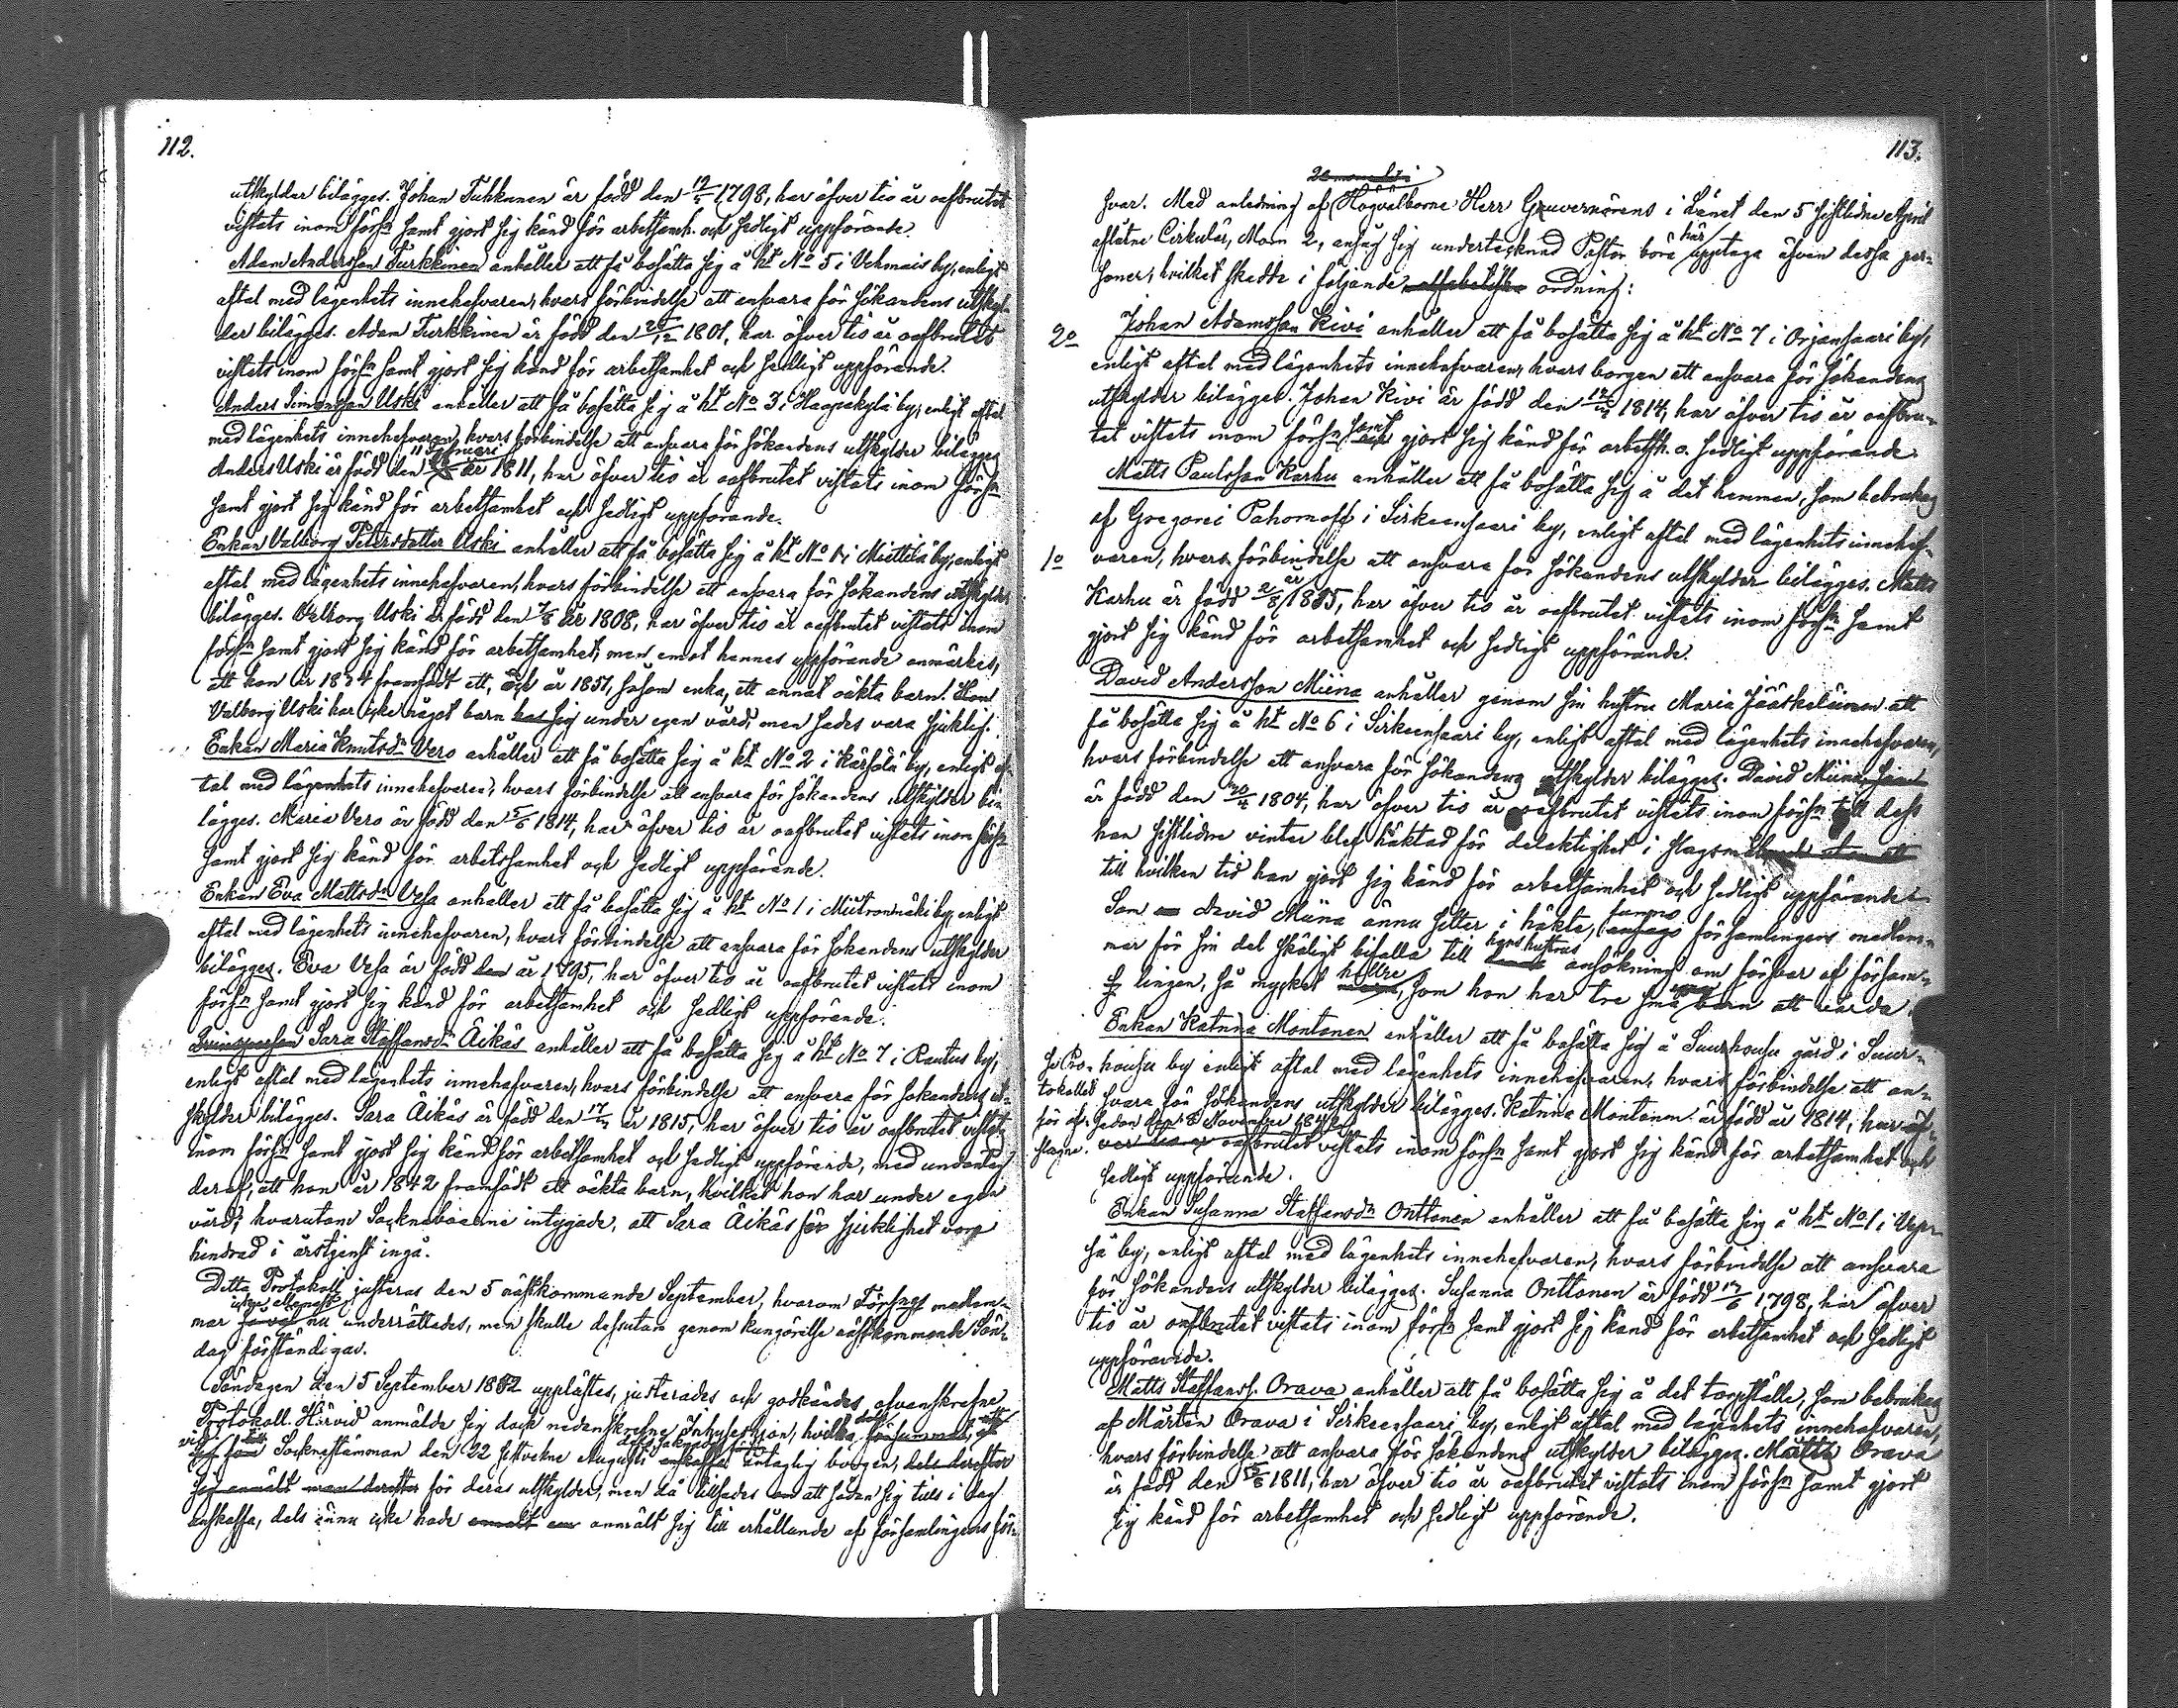 112.
utskylder bilägges. Johan Tuhkunen är född den 12/5 1798, har öfver tio år oafbrutet
vistats inom förs:n samt gjort sig känd för arbetsamh. och sedligt uppförande.
Adam Andersson Turkkinen anhåller att få bosätta sig å ht No 5 i Vehmais by, enligt
aftal med lägenhets innehafvaren, hvars förbindelse att ansvara för sökandens utskyl-
der bilägges. Adam Turkkinen är född den 25/12 1801, har öfver tio år oafbrutet
vistats inom förs:n samt gjort sig känd för arbetsamhet och sedligt uppförande.
Anders Simonsson Uski anhåller att få bosätta sig å ht No 3 i Haapakylä by, enligt aftal
med lägenhets innehafvaren, hvars förbindelse att ansvara för sökandens utskylder bilägges
11 Januari
Anders Uski är född den år 1811, har öfver tio år oafbrutet vistats inom förs:n
samt gjort sig känd för arbetsamhet och sedligt uppförande.
Enkan Valborg Petersdotter Uski anhåller att få bosätta sig å ht No 1 i Miettilä by, enligt
aftal med lägenhets innehafvaren, hvars förbindelse att ansvara för sökandens utskylder
bilägges. Valborg Uski är född den 7/8 år 1808, har öfver tio år oafbrutet vistats inom
förs:n samt gjort sig känd för arbetsamhet, men emot hennes uppförande anmärkes,
att hon år 1834 framfödt ett, och år 1851, såsom enka, ett annat oäkta barn. Hon
Valborg Uski har icke något barn hos sig under egen vård, men sades vara sjuklig.
Enkan Maria Knutsd:r Vero anhåller att få bosätta sig å ht No 2 i Kärsälä by, enligt af-
tal med lägenhets innehafvaren, hvars förbindelse att ansvara för sökandens utskylder bi-
lägges. Maria Vero är född den 5/6 1814, har öfver tio år oafbrutet vistats inom förs:n
samt gjort sig känd för arbetsamhet och sedligt uppförande.
Enkan Eva Mattsd:r Vesa anhåller att få bosätta sig å ht No 1 i Miitronmäki by, enligt
aftal med lägenhets innehafvaren, hvars förbindelse att ansvara för sökandens utskylder
bilägges. Eva Vesa är född den år 1795, har öfver tio år oafbrutet vistats inom
förs:n samt gjort sig känd för arbetsamhet och sedligt uppförande.
Sara Staffansd:r Äikäs anhåller att få bosätta sig å ht No 7 i Rautus by,
enligt aftal med lägenhets innehafvaren, hvars förbindelse att ansvara för sökandens ut-
skylder bilägges. Sara Äikäs är född den år 1815, har öfver tio år oafbrutet vistats
inom förs:n samt gjort sig känd för arbetsamhet och sedligt uppförande, med undantag
deraf, att hon år 1842 framfödt ett oäkta barn, hvilket hon har under egen
vård; hvarutom Sockneboerne intygade, att Sara Äikäs för sjuklighet vore
hindrad i årstjenst ingå.
Detta Protokoll justeras den 5 nästkommande September, hvarom Förs:ngs medlem-
mar nu underrättades, men skulle dessutom genom kungörelse nästkommande Sön-
dag förständigas.
Söndagen den 5 September 1852 upplästes, justerades och godkändes ofvanskrefne
Protokoll. Härvid anmälde sig dock nedanskrefne Inhyseshjon, hvilka
Sockenstämman den 22 sistvikne Augusti antaglig borgen, dels derefter
sig anmält för deras utskylder, men då tillsades att sådan sig till i dag
anskaffa, dels ännu icke hade anmält sig till erhållande af församlingens för-
113.
2 momentet i
svar. Med anledning af Högvälborne Herr Gouvernörens i Länet den 5 sistlidne April
aflåtne Cirkulär, Mom 2, ansåg sig undertecknad Pastor böra här upptaga äfven dessa per-
soner, hvilket skedde i följande alfabetiska ordning:
2o Johan Adamsson Kivi anhåller att få bosätta sig å ht No 7 i Orjansaari by,
enligt aftal med lägenhets innehafvaren, hvars borgen att ansvara för sökandens
utskylder bilägges. Johan Kivi är född den 1814, har öfver tio år oafbru-
tet vistats inom förs:n samt gjort sig känd för arbetsh. o. sedligt uppförande.
Matts Paulsson Karhu anhåller att få bosätta sig å det hemman, som bebrukas
af Gregori Pahomoff i Sirkeensaari by, enligt aftal med lägenhets innehaf-
1o varen, hvars förbindelse att ansvara för sökandens utskylder bilägges. Matts
Karhu är född 2/8 år 1815, har öfver tio år oafbrutet vistats inom förs:n samt
gjort sig känd för arbetsamhet och sedligt uppförande.
David Andersson Miina anhåller genom sin hustru Maria Jääskeläinen att
få bosätta sig å ht No 6 i Sirkeensaari by, enligt aftal med lägenhets innehafvaren,
hvars förbindelse att ansvara för sökandens utskylder bilägges. David Miina
är född den 20/4 1804, har öfver tio år oafbrutet vistats inom förs:n till dess
han sistlidne vinter blef häktad för delaktighet i slagsmål
till hvilken tid han gjort sig känd för arbetsamhet och sedligt uppförande.
Som David Miina ännu sitter i häkte, funno församlingens medlem-
mar för sin del skäligt bifalla till hans hustrus ansökning om försvar af försam-
lingen, så mycket hellre, som hon har tre små barn att vårda.
Enkan Katrina Montonen anhåller att få bosätta sig å Suurhousu gård i Suur-
housu by enligt aftal med lägenhets innehafvaren, hvars förbindelse att an-
svara för sökandens utskylder bilägges. Katrina Montonen är född år 1814, har öf-
Se Pro-
tokollet
för
sedan den 8 November 1841
ver tio år oafbrutet vistats inom förs:n samt gjort sig känd för arbetsamhet och
sedligt uppförande.
Enkan Susanna Staffansd:r Onttonen anhåller att få bosätta sig å ht No 1 i Vep-
sä by, enligt aftal med lägenhets innehafvaren, hvars förbindelse att ansvara
för sökandens utskylder bilägges. Susanna Onttonen är född 1798, har öfver
tio år oafbrutet vistats inom förs:n samt gjort sig känd för arbetsamhet och sedligt
uppförande.
Matts Staffanss. Orava anhåller att få bosätta sig å det torpställe, som bebrukas
af Mårten Orava i Sirkeensaari by, enligt aftal med lägenhets innehafvaren,
hvars förbindelse att ansvara för sökandens utskylder bilägges. Matts Orava
är född den 1811, har öfver tio år oafbrutet vistats inom förs:n samt gjort
sig känd för arbetsamhet och sedligt uppförande.